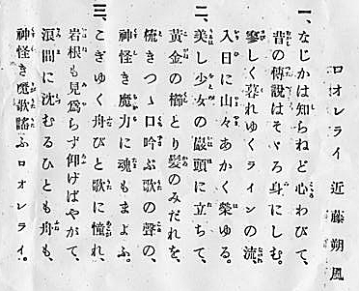 ロオレライ 近藤朔風
一、なじかは知らねど心わびて、
昔の傳説はそゞろ身にしむ。
寥しく暮れゆくラインの流、
入日に山々あかく榮ゆる。
二、美し少女の巖頭に立ちて、
黃金の櫛とり髮のみだれを、
梳きつゝ口吟ぶ歌の聲の、
神怪き魔力に魂もまよふ。
三、こぎゆく舟びと歌に憧れ、
岩根も見爲らず仰げばやがて、
浪間に沈むるひとも舟も、
神怪き魔歌謠ふロオレライ。